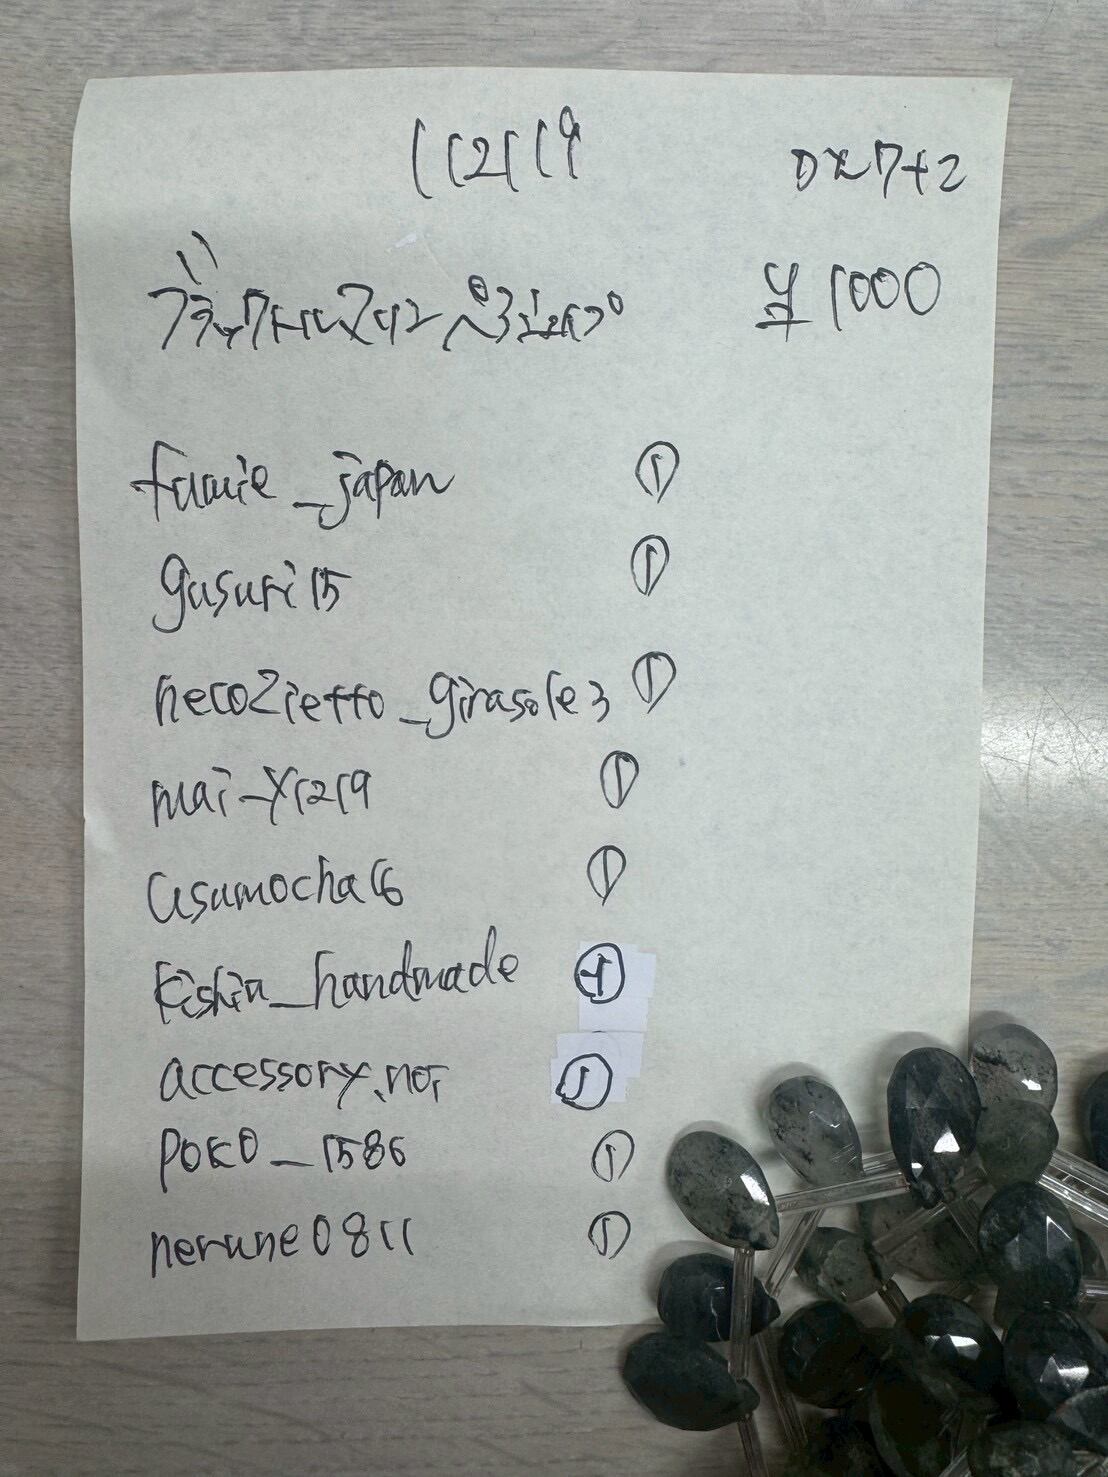 112119
0x7+2
ブラックトルマリン ペアシェイプ
¥1000
fumie_japan ①
gusuri15 ①
neco2ietto_girasole3 ①
mai-y1219 ①
asumocha16 ①
kishin_handmade ①
accessory.nor ①
poko_1586 ①
nerune0811 ①